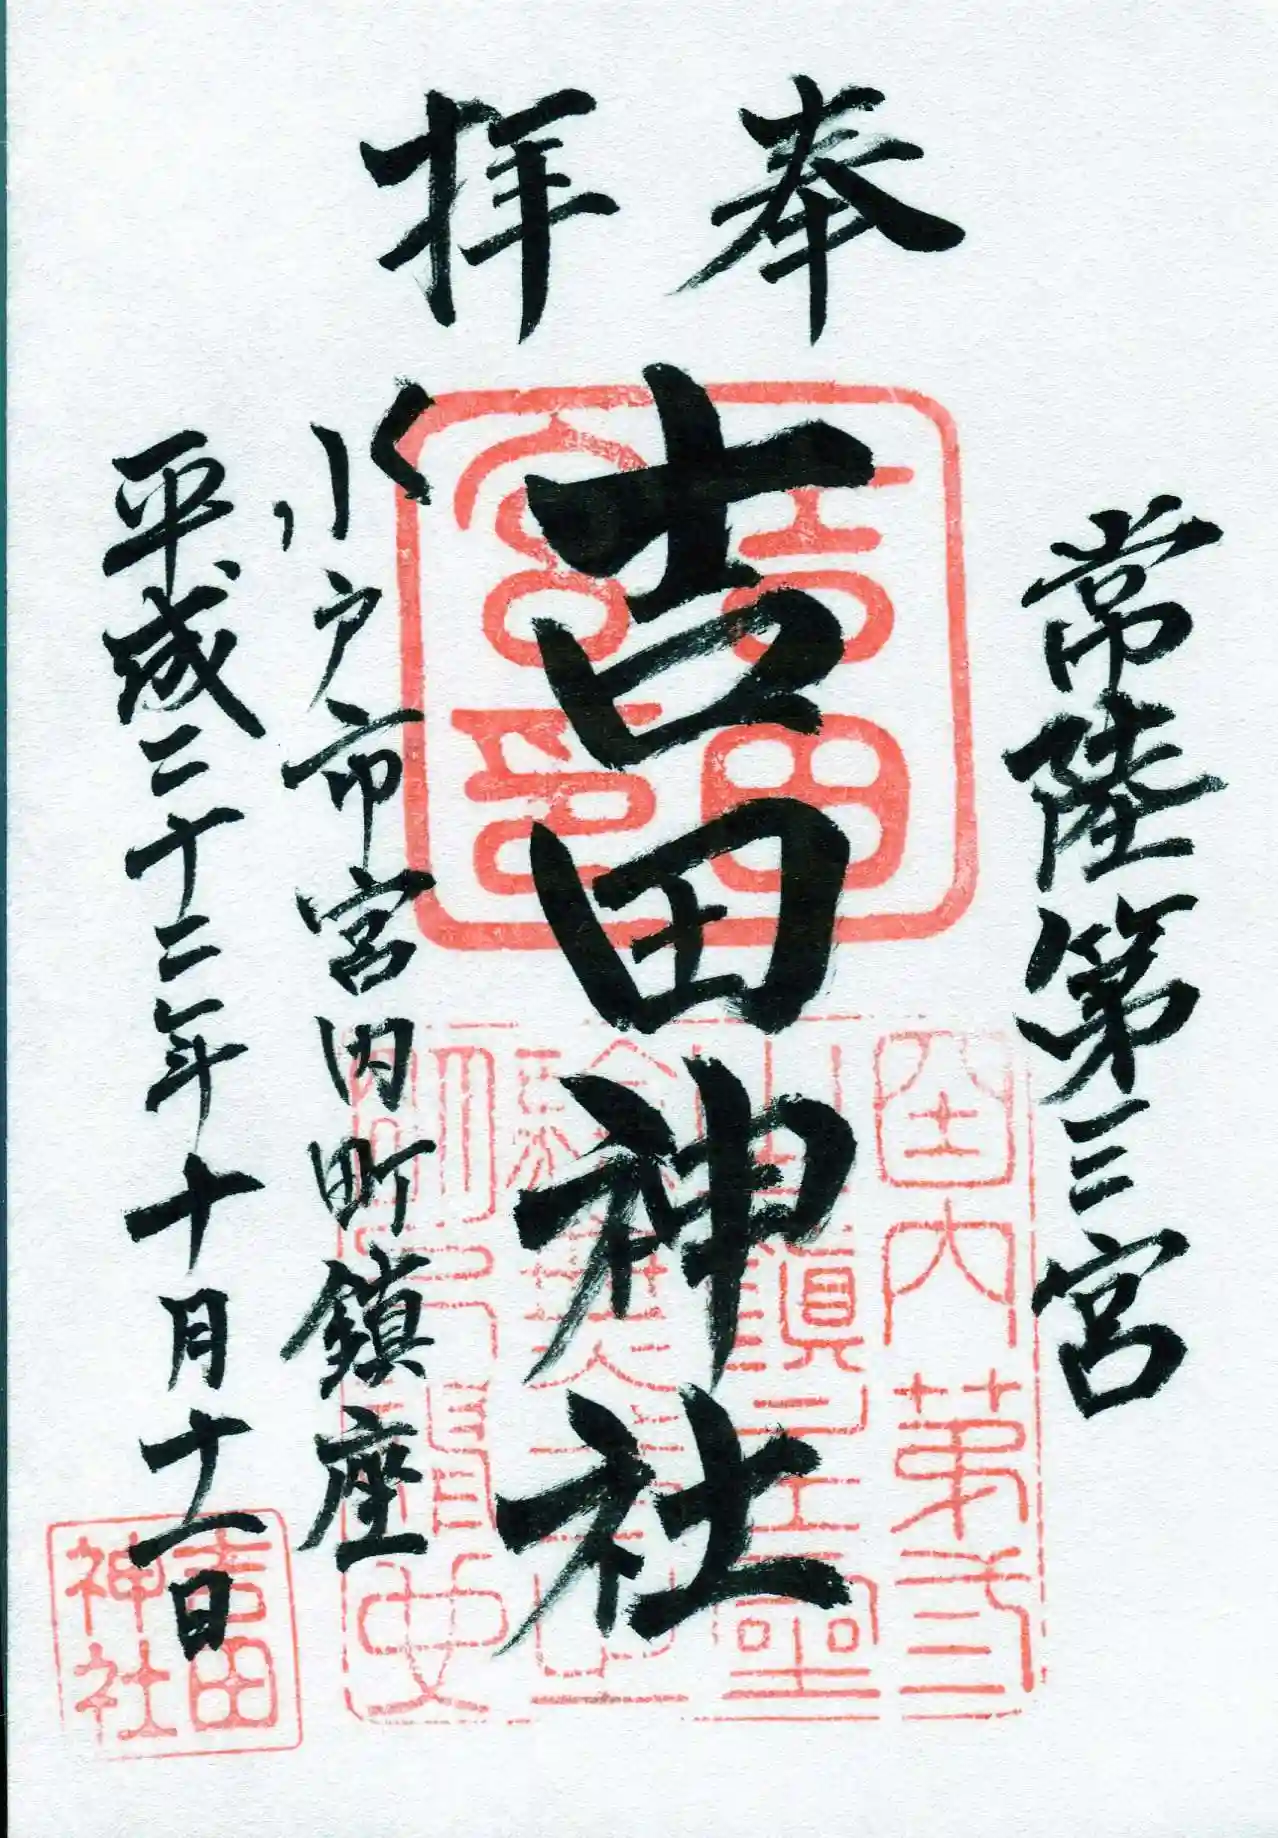 奉拝
常陸第三宮
吉田神社
水戸市宮内町鎮座
平成二十二年十月十一日
吉田宮印
吉田神社